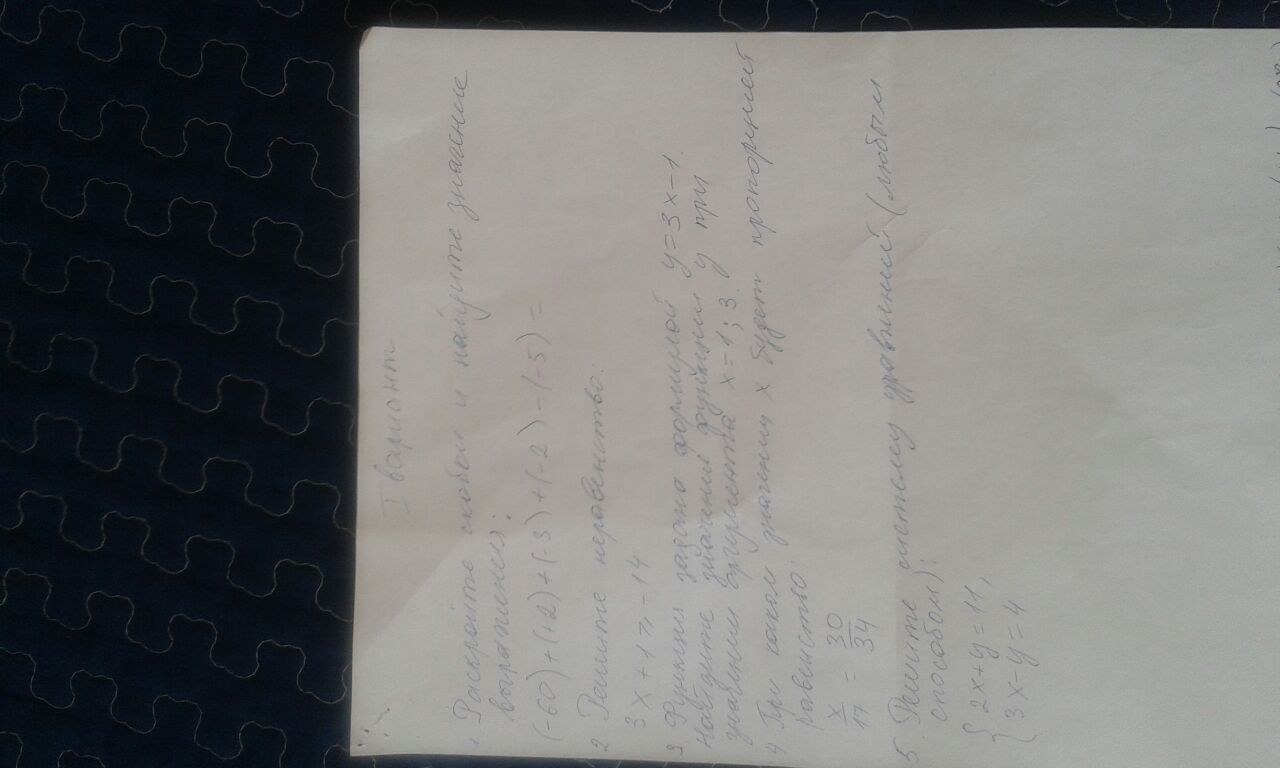 I вариант
1. Раскройте скобки и найдите значение
выражения:
(-60)+(+2)+(-3)+(-2)-(-5)=
2 Решите неравенство:
3x+1≥-14
3 Функция задана формулой y=3x-1.
Найдите значения функции y при
значении аргумента x=1; 3.
4 При каком значении x будет пропорцией
равенство:
x/17 = 30/34
5. Решите систему уравнений (любым
способом):
{ 2x+y=11,
{ 3x-y=4